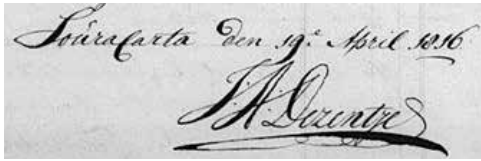 Soüracarta den 19.e April 1816
J. A. Dezentje